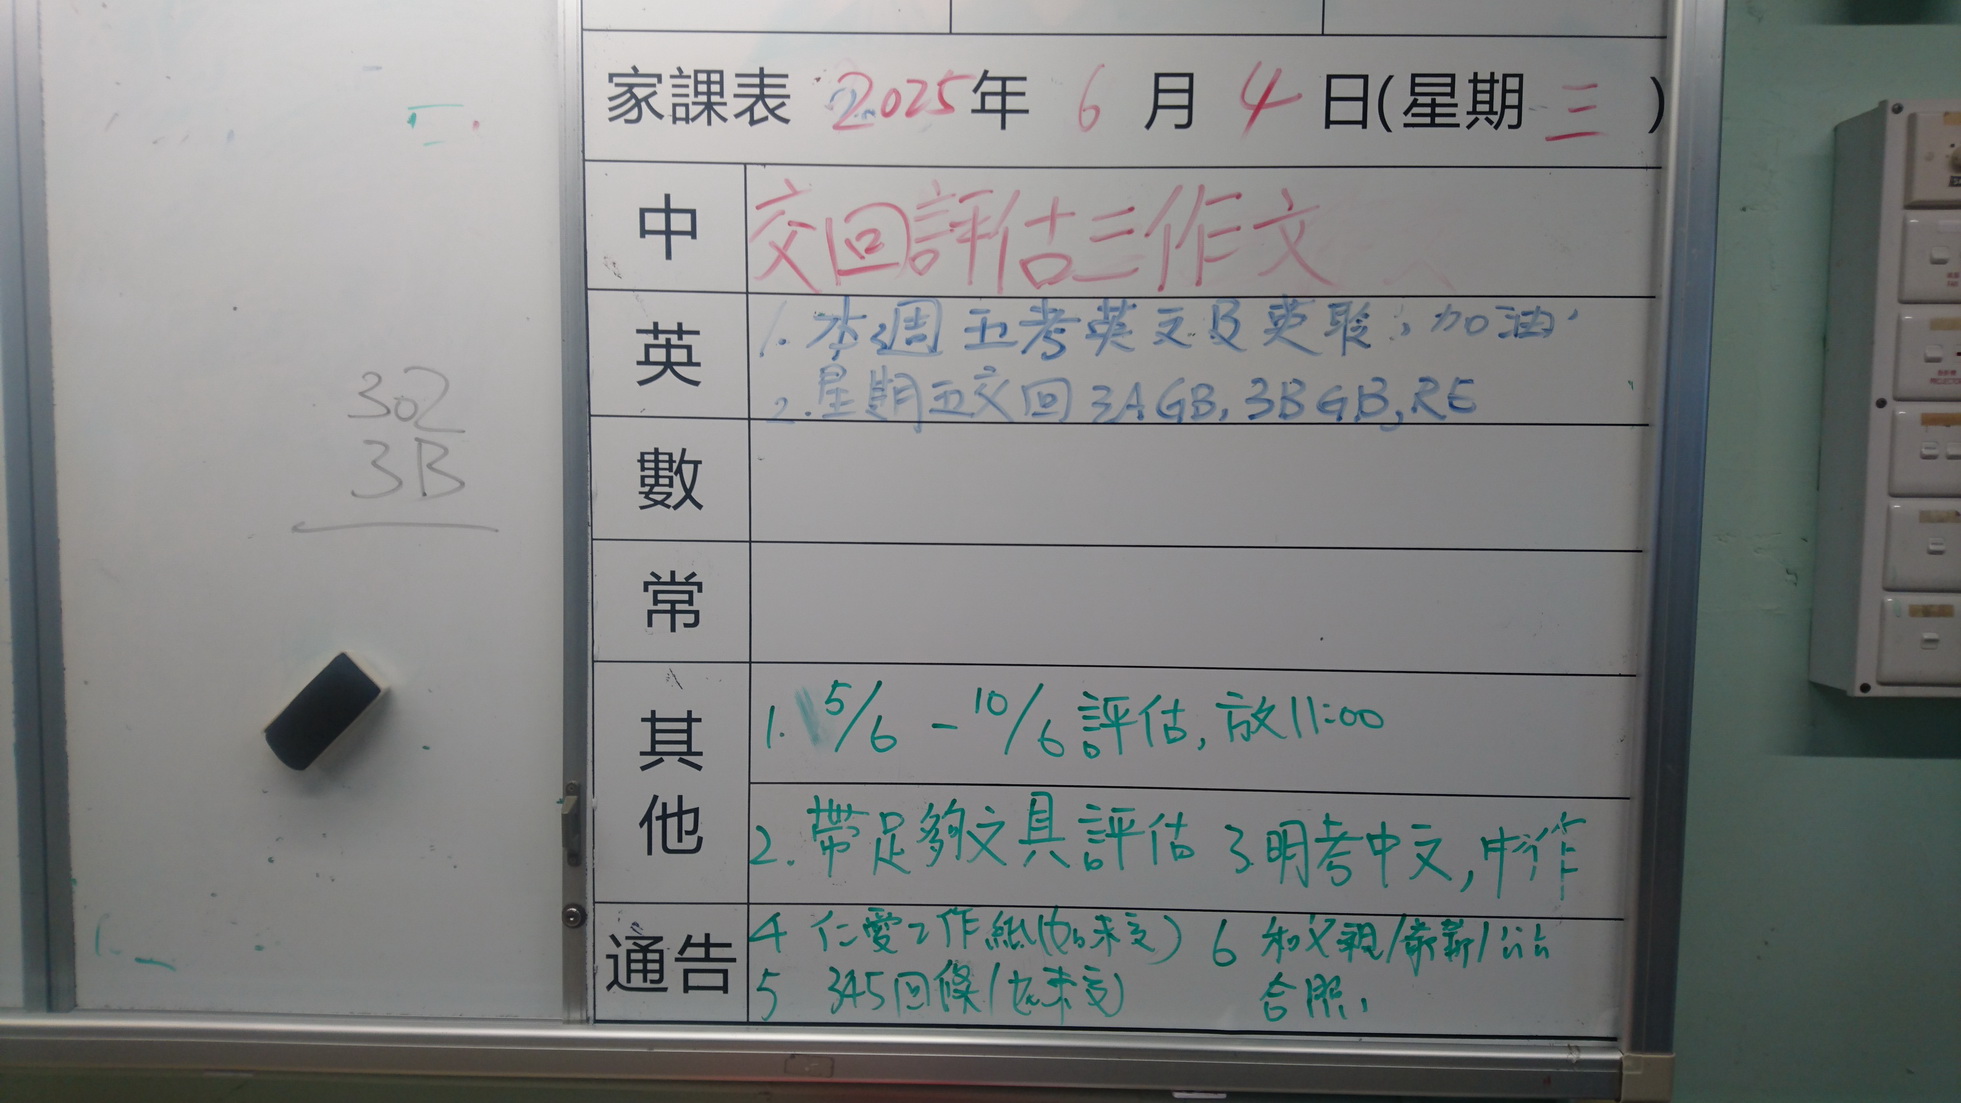 302
3B
家課表 2025年 6 月 4 日(星期 三 )
中 交回評估三作文
英 1. 本週五考英文及英聆,加油,
2. 星期五交回3AGB, 3BGB, RE
數
常
其他 1. 5/6 - 10/6 評估, 放11:00
2. 帶足夠文具評估 3.明考中文, 中作
通告 4 仁愛工作紙(如未交) 6 和父親/爺爺/
5 345回條(如未交) 合照,